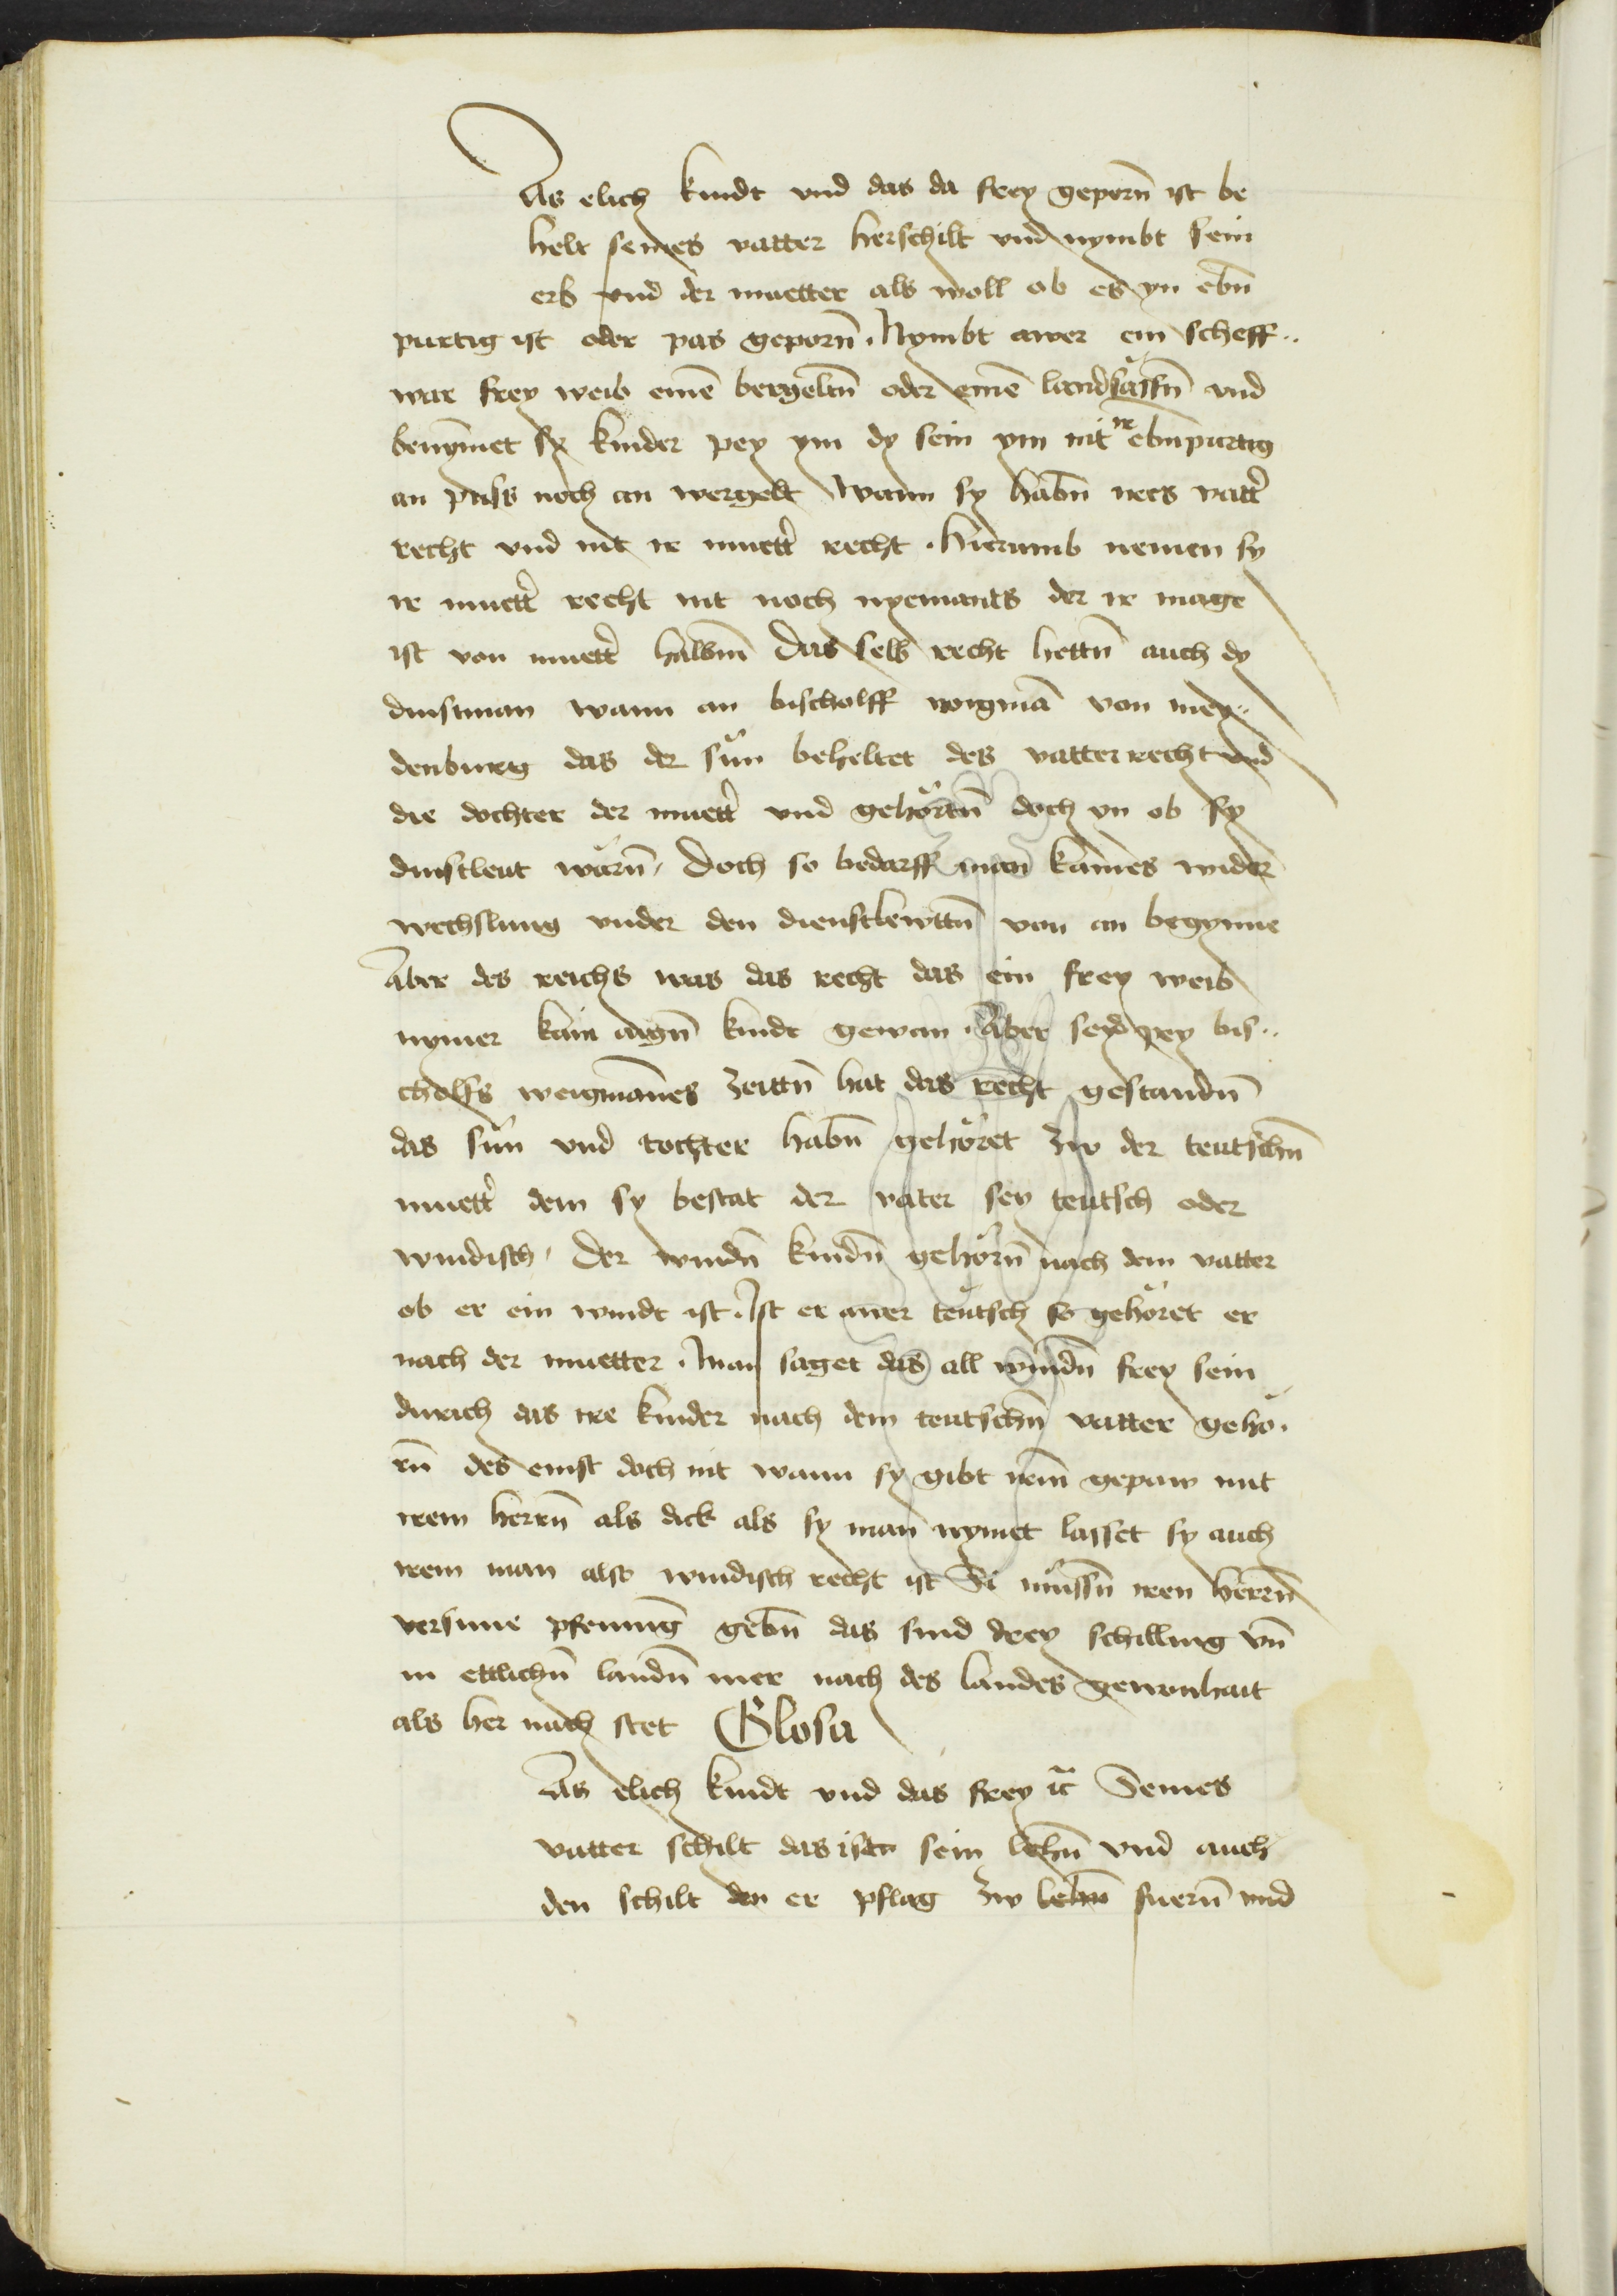 As elich kindt vnd das da frey geporn̄ ist be
helt seines vatter herschilt vnd nymbt sein
erb vnd der muetter als woll ob es yn ebn̄
purtig ist oder pas geporn̄. Nymbt awer ein scheff..
war frey weib eine̅ bergeltn̄ oder eine̅ landsässn̄ vnd
benÿmet sy kinder pey ym dy sein ym nit ir ebmpurtig
an puss noch an wergelt Wann sy habn̄ irers vatt̄
recht vnd nit ir muett̄ recht. hierumb nemen sy
ir muett̄ recht nit noch nyemants der ir mage
ist von muett̄ halbm̄ Das selb recht hettn̄ auch dy
dinstman wann an bischolff worgma̅ von mey..
denburg das der sün beheltet des vatter recht vnd
die dochter der muett̄ vnd gehörtn̄ doch yn ob sy
dinstleut wärn̄, Doch so bedarff man kaines wider
wechslung vnder den dienstlewttn̄ von an begynne
Aber des reichs was das recht das ein frey weib
nymer kain aign̄ kindt gewan. Aber seyd pey bis..
cholfs weigma̅nes zeittn̄ hat das recht gestandn̄
das sün vnd tochter habn̄ gehöret zw der teutschn̄
muett̄ dem sy bestat der vater sey teutsch oder
windisch, Der windn̄ kindn̄ gehörn̄ nach dem vatter
ob er ein windt ist. Ist er awer teutsch so gehöret er
nach der muetter. Man saget das all windn̄ frey sein
durich das ire kinder nach dem teutschn̄ vatter gehö.
rn̄ des einst doch nit wann sy gibt irem̄ gepaw mit
irem herrn̄ als dick als sy man nymet lasset sy auch
irem man also windisch recht ist Si müssn̄ iren herrn̄
versune pfening gebn̄ das sind drey schilling vn̄
in ettlichn̄ landn̄ mer nach des landes gewonhait
als her nach stet Glosa
As elich kindt vnd das frey ꝛc̄ Seines
vatter schilt das istn sein lehn̄ vnd auch
den schilt den er pflag zw lehn̄ fuern̄ vnd